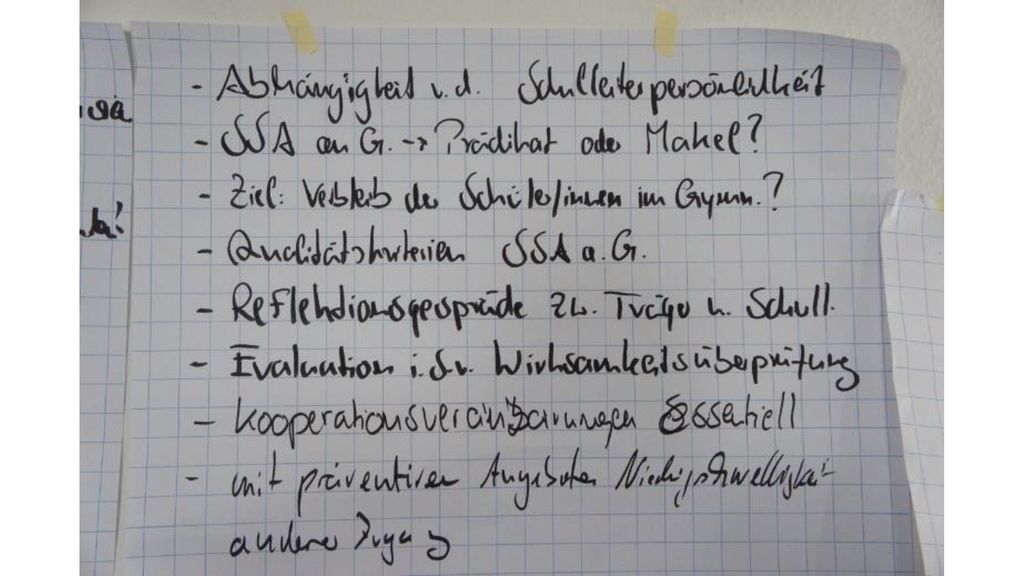 - Abhängigkeit v.d. Schulleiterpersönlichkeit
- SSA am G. -> Prädikat oder Makel?
- Ziel: Verbleib der Schüler/innen im Gymn.?
- Qualitätskriterien SSA a. G.
- Reflektionsgespräche zw. Träger u. Schull.
- Evaluation i.S.v. Wirksamkeitsüberprüfung
- Kooperationsvereinbarungen essentiell
- mit präventiven Angeboten Niedrigschwelligkeit
andere Zugang